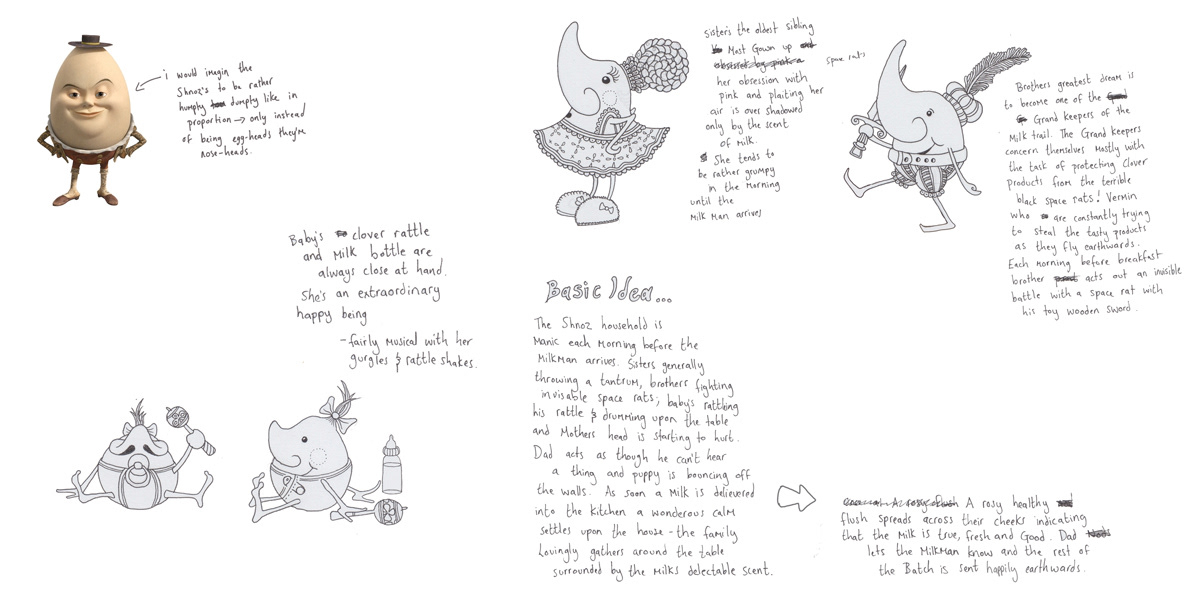 i would imagin the
Shnoz's to be rather
humpty dumpty like in
proportion → only instead
of being egg-heads they're
nose-heads.
Sister's the oldest sibling
Most Gown up
obsessed by pink a
space rats
her obsession with
pink and plaiting her
air is over shadowed
only by the scent
of Milk.
She tends to
be rather grumpy
in the Morning
until the
Milk Man arrives
Brothers greatest dream is
to become one of the
Grand keepers of the
Milk trail. The Grand keepers
concern themselves Mostly with
the task of protecting Clover
products from the terrible
black space rats! Vermin
who are constantly trying
to steal the tasty products
as they fly earthwards.
Each Morning before breakfast
brother acts out an invisible
battle with a space rat with
his toy wooden sword.
Baby's clover rattle
and Milk bottle are
always close at hand.
She's an extraordinary
happy being
- fairly Musical with her
gurgles & rattle shakes.
Basic Idea...
The Shnoz household is
Manic each Morning before the
Milkman arrives. Sisters generally
throwing a tantrum, brothers fighting
invisable space rats; baby's rattling
his rattle & drumming upon the table
and Mothers head is starting to hurt.
Dad acts as though he can't hear
a thing and puppy is bouncing off
the walls. As soon a Milk is delievered
into the kitchen a wonderous calm
settles upon the house - the family
Lovingly gathers around the table
surrounded by the Milks delectable scent.
A rosy flush A rosy healthy
flush spreads across their cheeks indicating
that the Milk is true, fresh and Good. Dad
lets the Milkman know and the rest of
the Batch is sent happily earthwards.